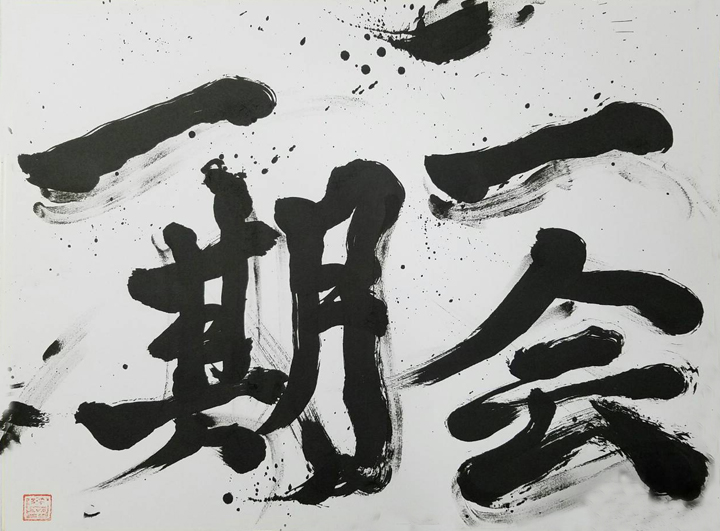 一期
一会